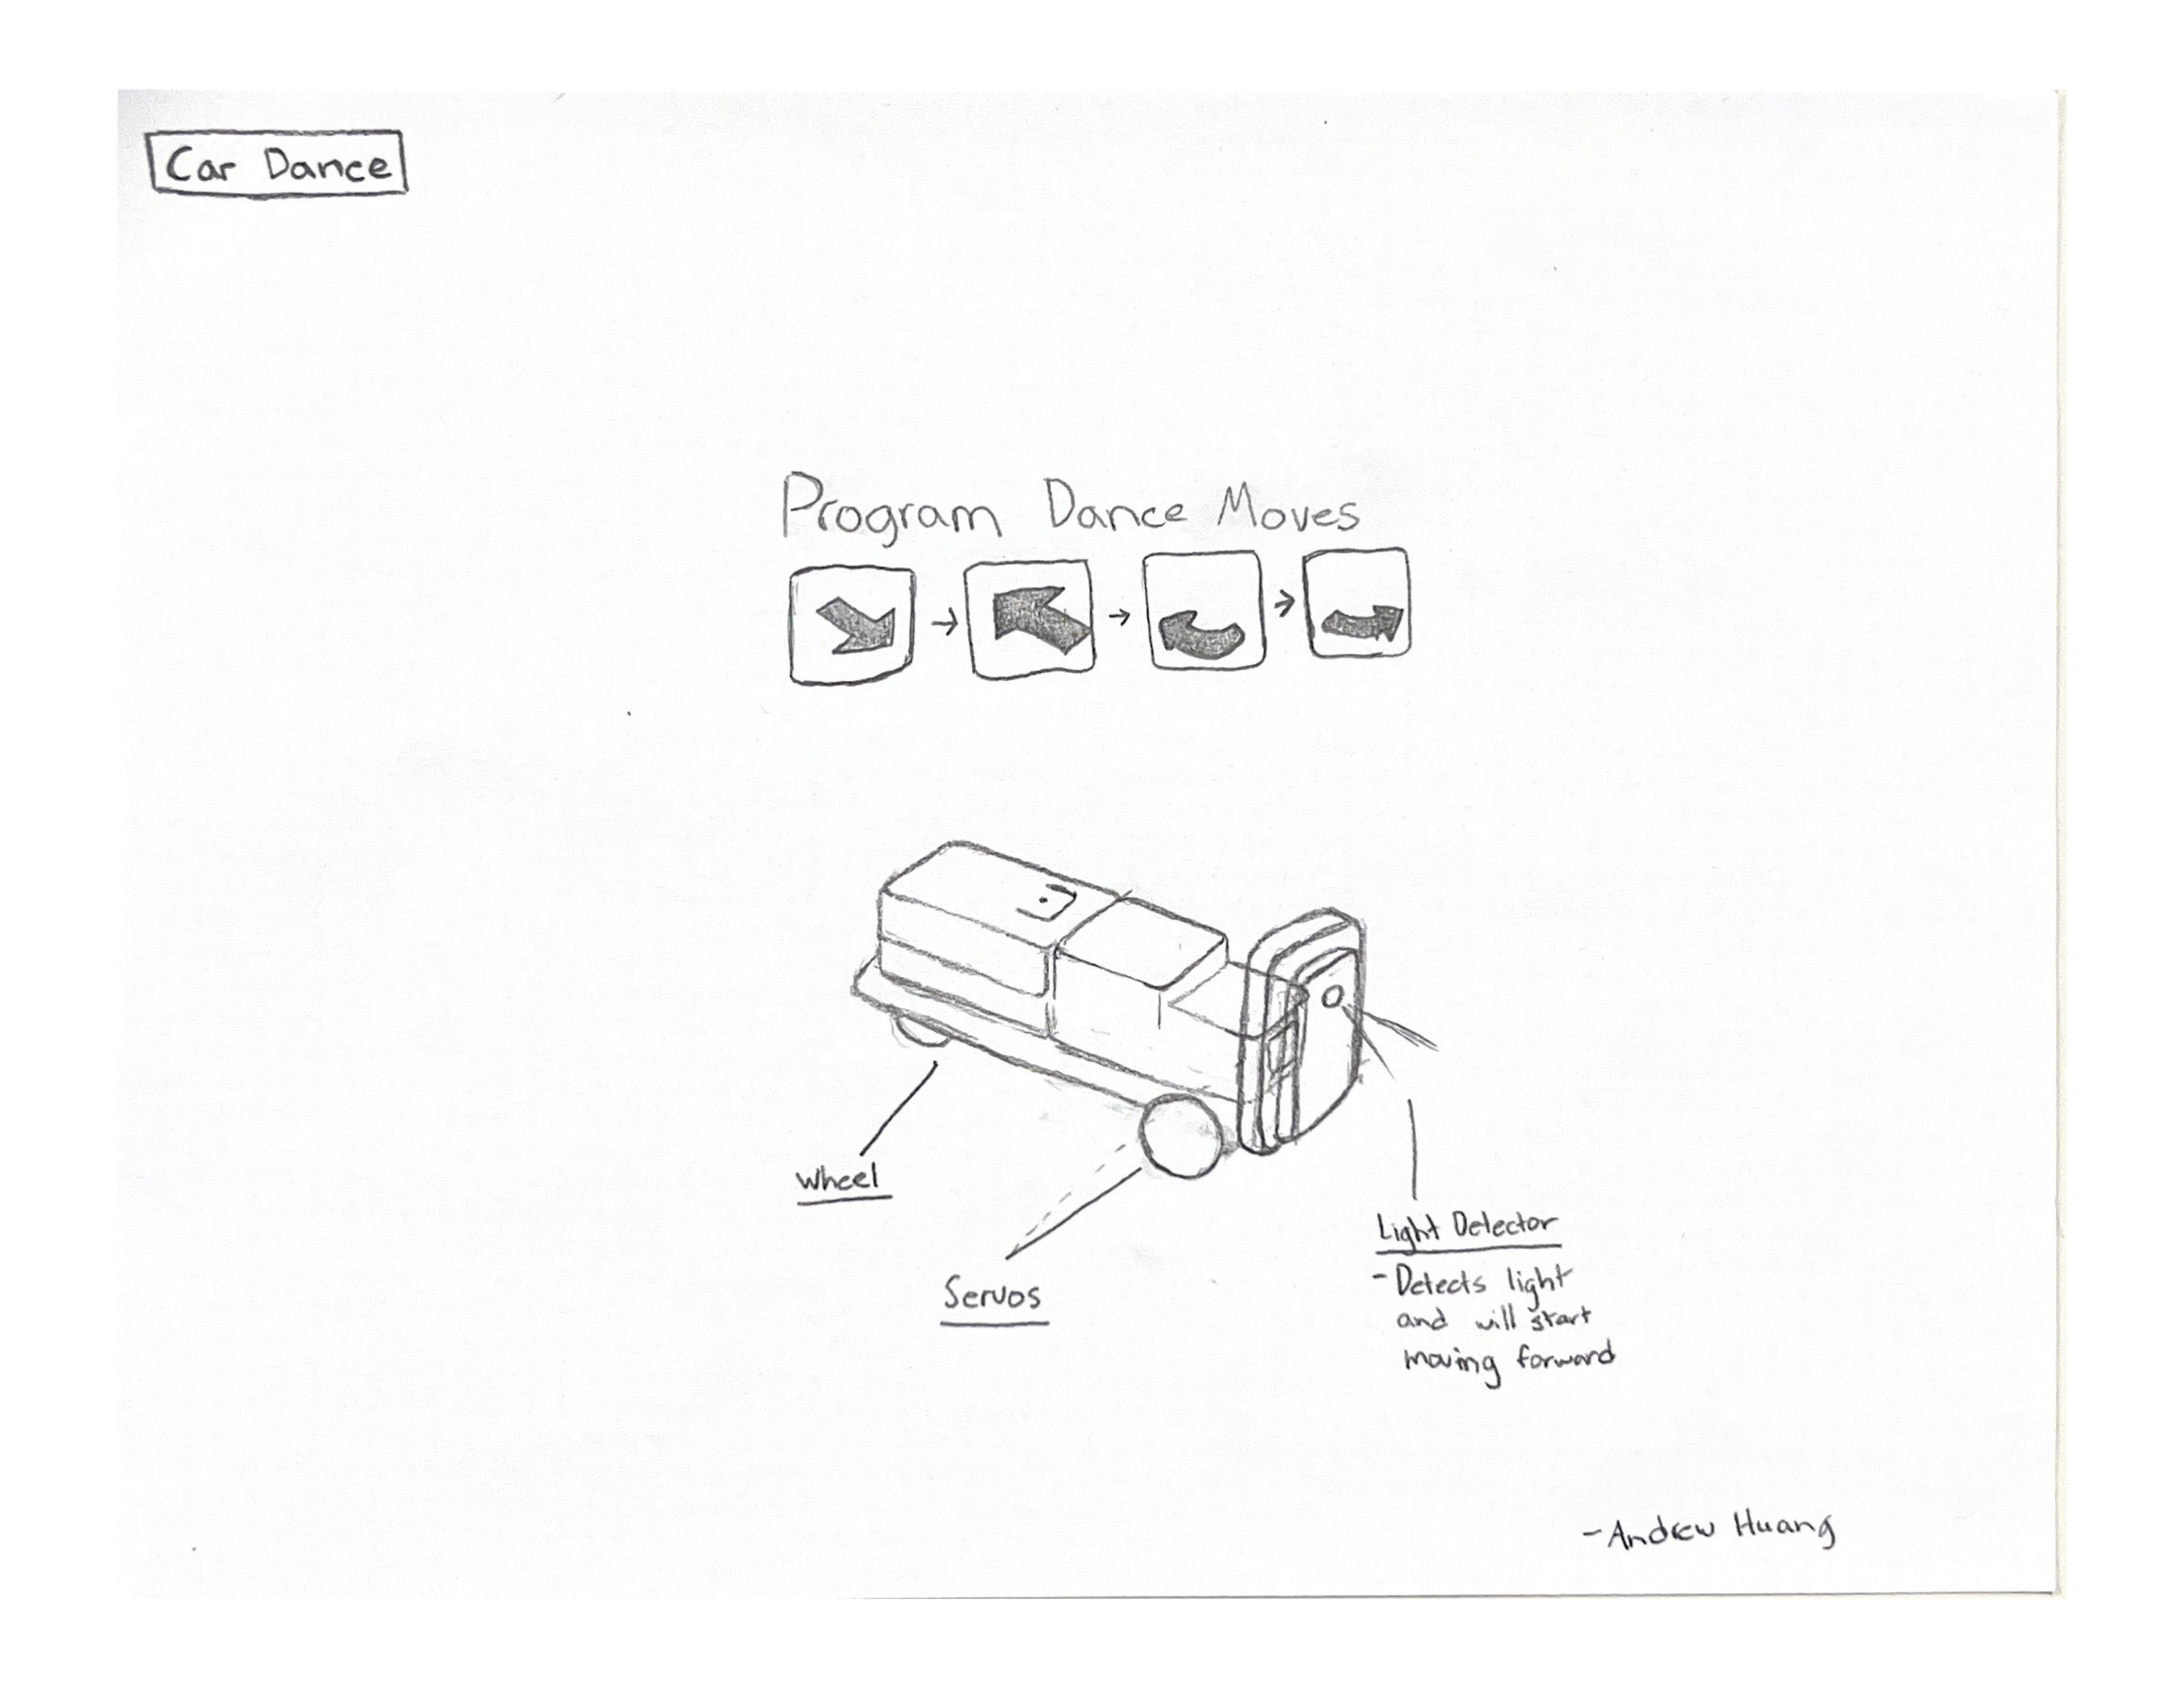 Car Dance
Program Dance Moves
Wheel
Servos
Light Detector
- Detects light
and will start
moving forward
- Andrew Huang